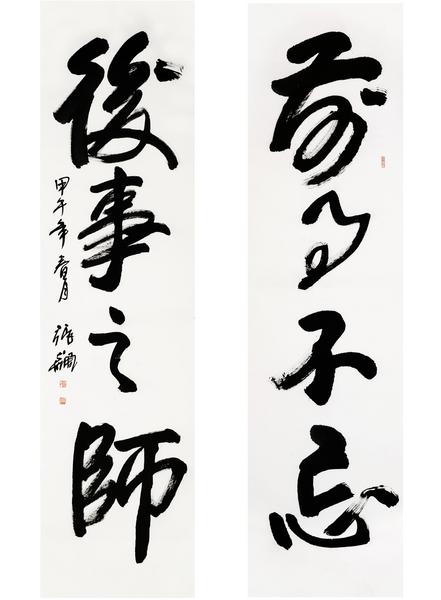 前事不忘
後事之師
甲午年春月